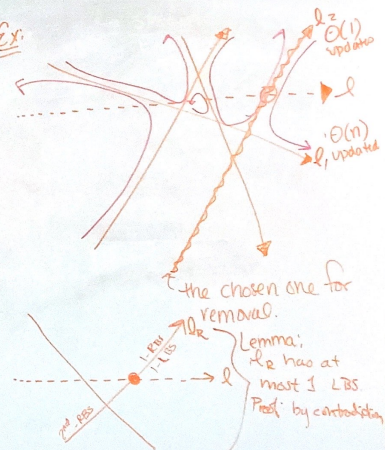 Ex:
l₂
Θ(1)
updated
l
Θ(n)
l₁ updated
the chosen one for
removal.
l_R
1-RBS
1-LBS
l
2nd-RBS
Lemma:
l_R has at
most 1 LBS
Proof: by contradiction